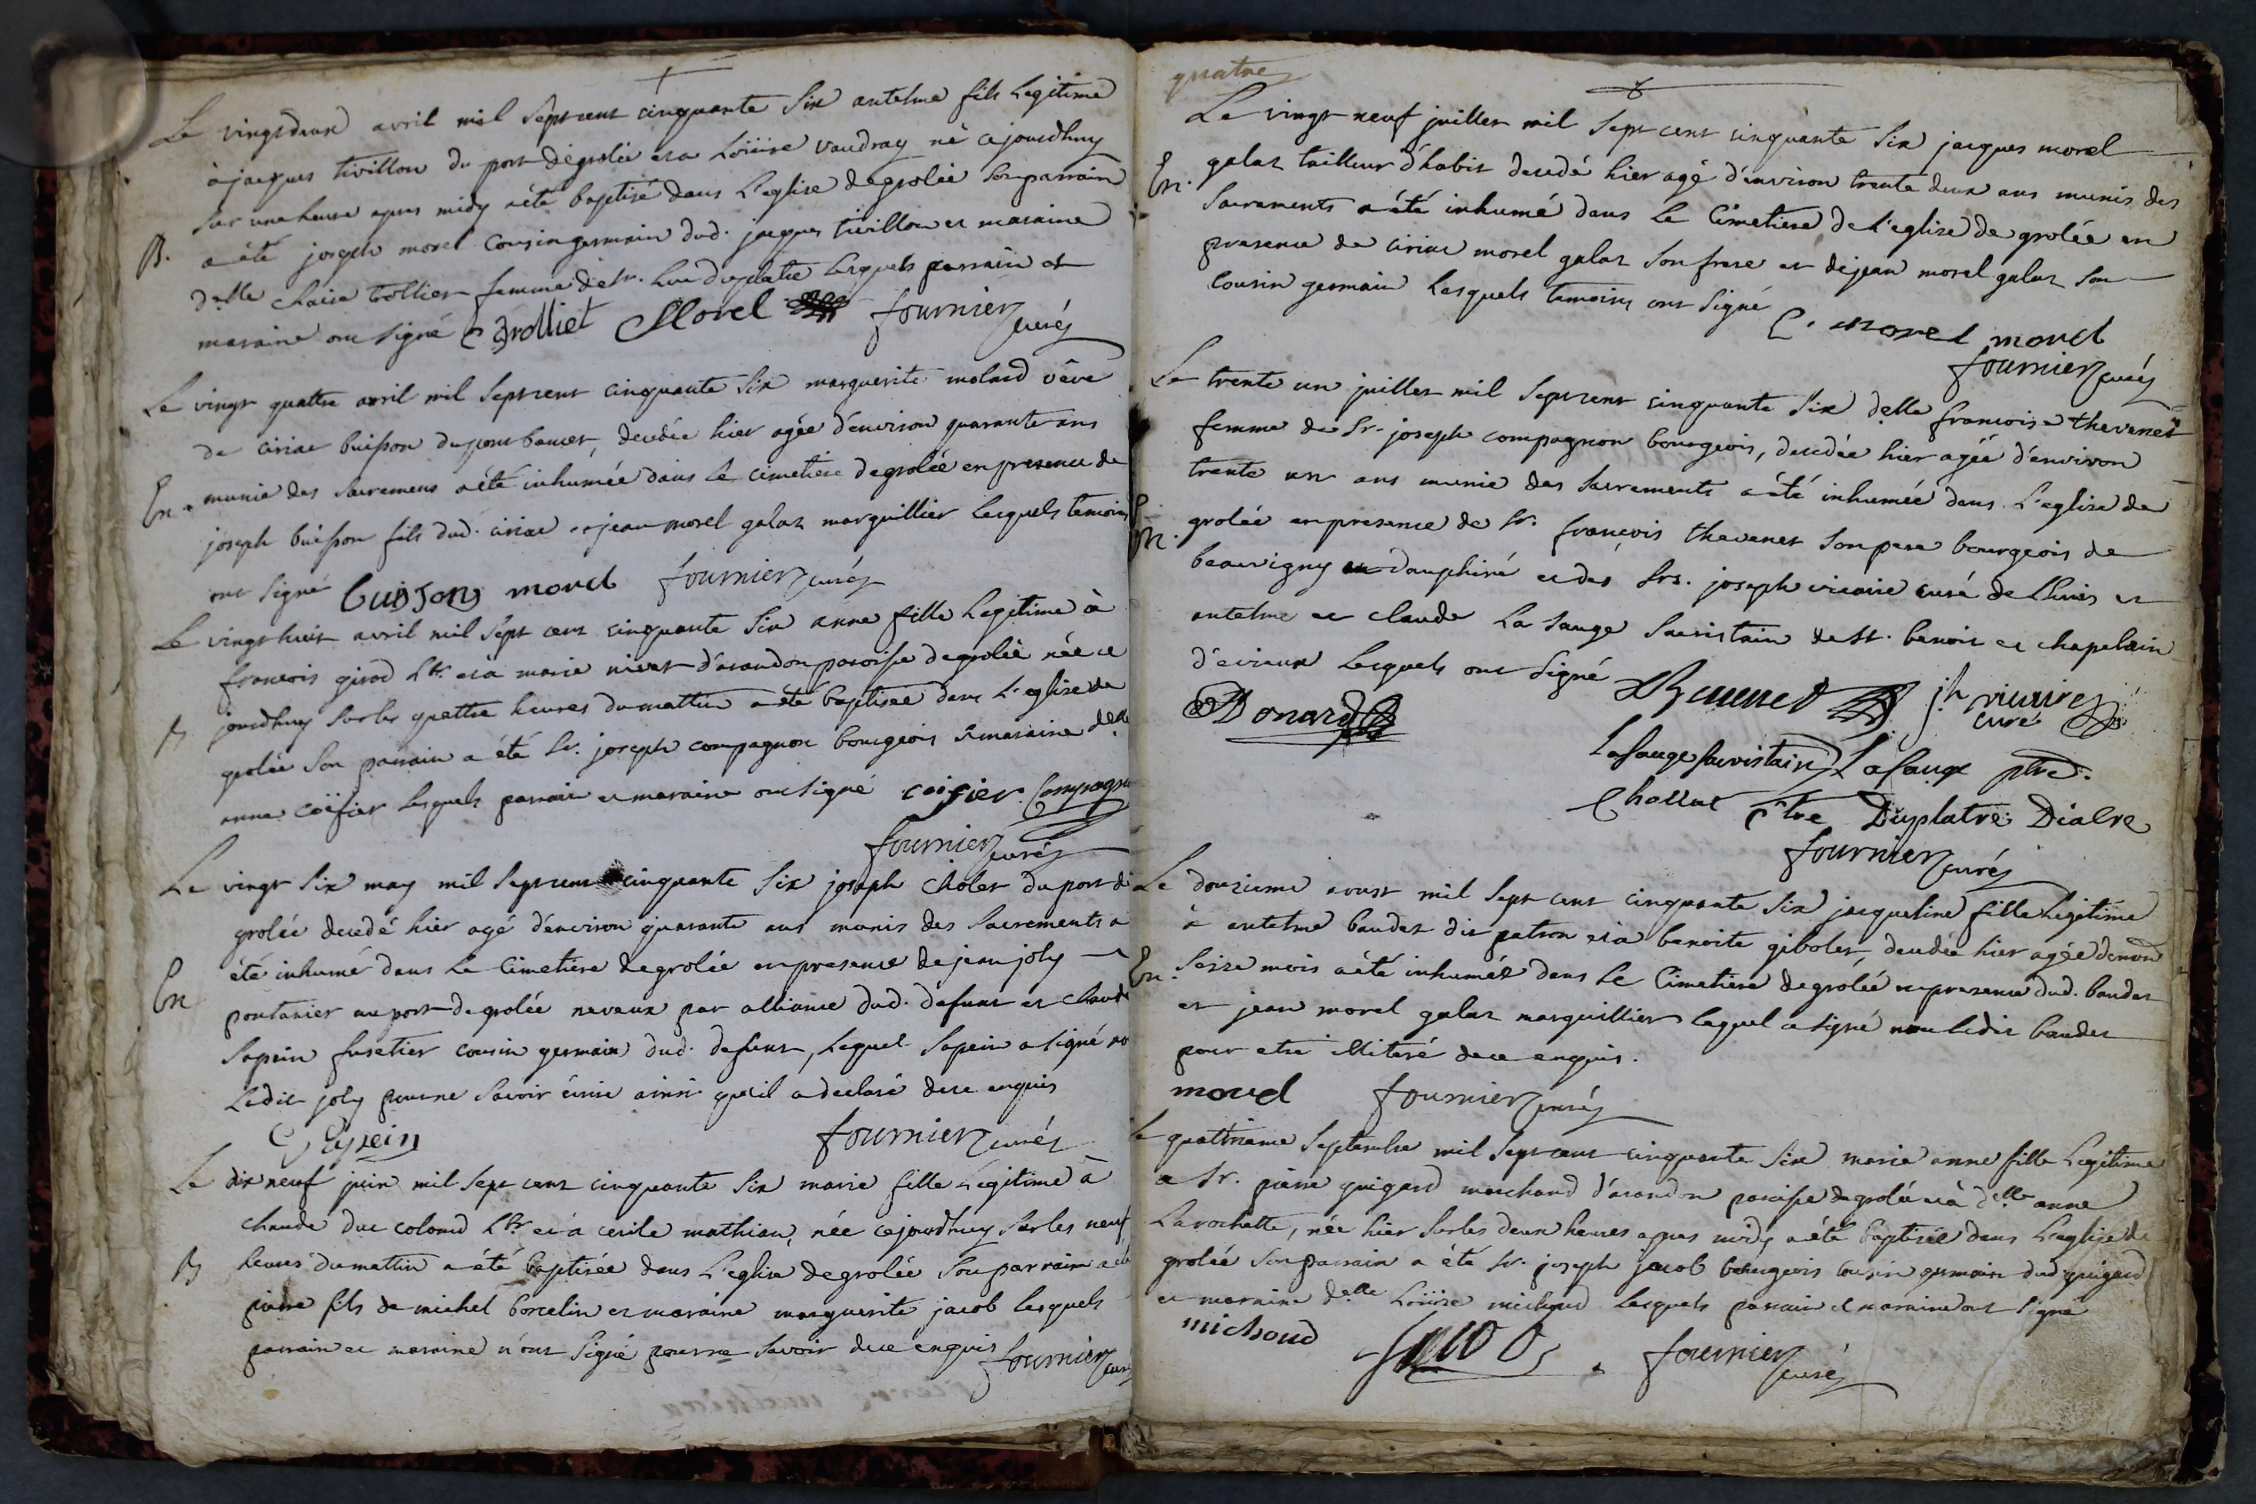 Le vingt deux avril mil sept cent cinquante six antelme fils legitime
à jacques tivillon du port de grolée et a Loüise vaudray né cejourdhuy
sur une heure apres midy a été baptisé dans l'eglise de grolée son parrain
B. a été joseph morel cousin germain dud. jacques tivillon et maraine
delle claire trolliet femme de sr. duplatre lesquels parrain et
maraine ont signé Trolliet Morel fournier curé
Le vingt quattre avril mil sept cent cinquante six marguerite molard veve
de ciriac buisson du pont bancet, decedée hier agée d'environ quarante ans
En. munie des sacremens a été inhumée dans le cimetiere de grolée en presence de
joseph buisson fils dud. ciriac et jean morel galaz marguillier lesquels temoins
ont signé buisson morel fournier curé
Le vingt huit avril mil sept cent cinquante six anne fille legitime à
francois girod et a marie nivet d'arandon paroisse de grolée née ce
B jourdhuy sur les quattre heures du mattin a été baptisée dans l'eglise de
grolée son parrain a été sr. joseph compagnon bourgeois et maraine delle
anne coïfier lesquels parrain et maraine ont signé coifier Compagnon
fournier curé
Le vingt six may mil sept cent cinquante six joseph cholet du port de
grolée decedé hier agé d'environ quarante ans munis des sacrements a
En été inhumé dans le Cimetiere de grolée en presence de jean joly
pontanier au port de grolée neveux par alliance dud. defunt et claude
sapein fusetier cousin germain dud. defunt, lequel sapein a signé non
ledit joly pour ne savoir écrire ainsi qu'il a declaré de ce enquis
C Sapein fournier curé
Le dix neuf juin mil sept cent cinquante six marie fille legitime à
claude duc colomb et a cecile mathian, née cejourdhuy sur les neuf
B heures du mattin a été baptisée dans l'eglise de grolée son parrain a été
pierre fils de michel borcelin et maraine marguerite jacob lesquels
parrain et maraine n'ont signé pour ne savoir de ce enquis fournier curé
quatre
Le vingt neuf juillet mil sept cent cinquante six jacques morel
En. galaz tailleur d'habit decedé hier agé d'environ trente deux ans munis des
sacraments a été inhumé dans le Cimetiere de l'eglise de grolée en
presence de ciriac morel galaz son frere et de jean morel galaz son
cousin germain lesquels temoins ont signé C. morel morel
fournier curé
Le trente un juillet mil sept cent cinquante six delle francoise thevenet
femme de sr. joseph compagnon bourgeois, decedée hier agée d'environ
trente un ans munie des sacrements a été inhumée dans l'eglise de
En. grolée en presence de sr. francois thevenet son pere bourgeois de
beauvigny en dauphiné et des srs. joseph vicaire curé de Lhuis et
antelme et claude La sauge sacristain de st. benoit et chapelain
d'evieux lesquels ont signé Thevenet jh vicaire curé
Bonard
Lasauge sacristain Lasauge ptre.
Chollat Ptre Duplatre Diacre
fournier curé
Le douzieme avust mil sept cent cinquante six jacqueline fille legitime
à antelme baudet dit patron et a benoite gibolet, decedée hier agée denviron
En. seize mois a été inhumée dans le Cimetiere de grolée en presence dud. baudet
et jean morel galaz marguillier lequel a signé non ledit baudet
pour etre illiteré de ce enquis.
morel fournier curé
Le quattrieme septembre mil sept cent cinquante six marie anne fille legitime
a sr. pierre guigard marchand d'arandon paroisse de grolée et à delle anne
Larochette, née hier sur les deux heures apres midy a été baptisée dans l'eglise de
grolée son parrain a été sr. joseph jacob bourgeois cousin germain dud guigard
et marraine delle Loüise michoud lesquels parrain et maraine ont signé
michoud Jacob fournier curé